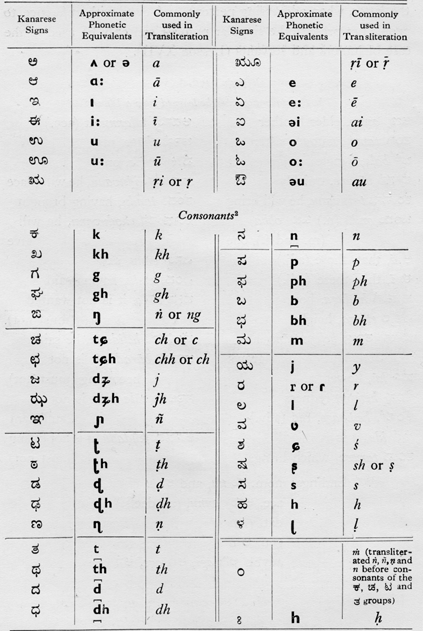 Kanarese Signs | Approximate Phonetic Equivalents | Commonly used in Transliteration | Kanarese Signs | Approximate Phonetic Equivalents | Commonly used in Transliteration
ಅ | ʌ or ə | a | ೠ | | ṛī or ṝ
ಆ | ɑ: | ā | ಎ | e | e
ಇ | ɪ | i | ಏ | e: | ē
ಈ | i: | ī | ಐ | əi | ai
ಉ | u | u | ಒ | o | o
ಊ | u: | ū | ಓ | o: | ō
ಋ | | ṛi or ṛ | ಔ | əu | au
Consonants²
ಕ | k | k | ನ | n̪ | n
ಖ | kh | kh | ಪ | p | p
ಗ | g | g | ಫ | ph | ph
ಘ | gh | gh | ಬ | b | b
ಙ | ŋ | ṅ or ng | ಭ | bh | bh
ಚ | tɕ | ch or c | ಮ | m | m
ಛ | tɕh | chh or ch | ಯ | j | y
ಜ | dʑ | j | ರ | r or ɾ | r
ಝ | dʑh | jh | ಲ | l | l
ಞ | ɲ | ñ | ವ | ʋ | v
ಟ | ʈ | ṭ | ಶ | ɕ | ś
ಠ | ʈh | ṭh | ಷ | ʂ | sh or ṣ
ಡ | ɖ | ḍ | ಸ | s | s
ಢ | ɖh | ḍh | ಹ | h | h
ಣ | ɳ | ṇ | ಳ | ɭ | ḷ
ತ | t̪ | t | ಂ | | ṁ (transliterated ṅ, ñ, ṇ and n before consonants of the ಕ, ಚ, ಟ and ತ groups)
ಥ | t̪h | th
ದ | d̪ | d
ಧ | d̪h | dh | ಃ | h | ḥ